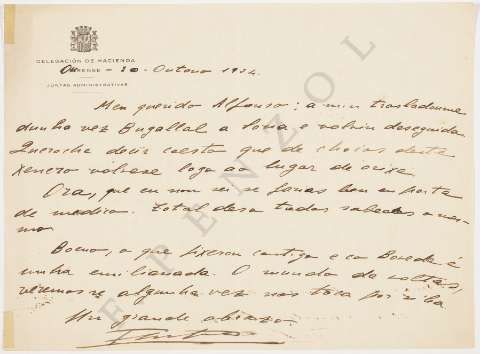 DELEGACIÓN DE HACIENDA
OURENSE - 20 - Outono 1934.
JUNTAS ADMINISTRATIVAS
Meu querido Alfonso: a min trasladanme
dunha vez Bugallal a Soria e volvin deseguida
Queroche decir con esto que de choias deste
xenero vólvese logo ao lugar de orixe.
Ora, que eu non sei se farias ben a porta
de medico. Total desa todos sabedes o mes-
mo
Bueno, o que fixeron contigo e co Boveda é
unha The mundo da voltas,
veremos se algunha vez nos toca por riba
Un grande abrazo.
PENZOL